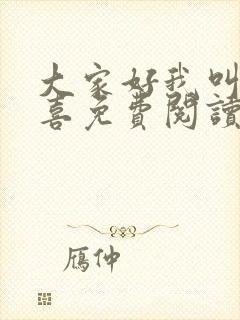 大家好我叫
喜免費閱讀
鴈仲